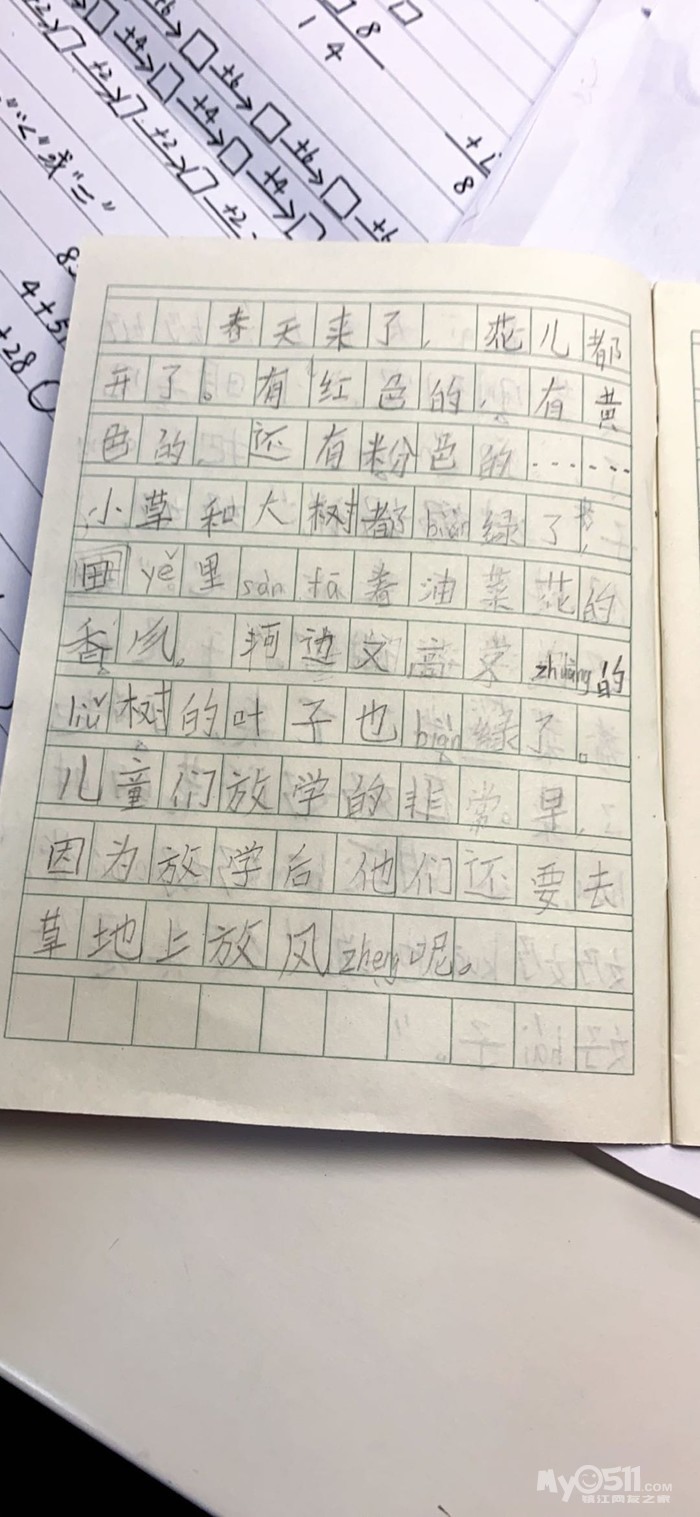 春天来了，花儿都
开了。有红色的，有黄
色的，还有粉色的……
小草和大树都biàn绿了，
田yě里sàn fā着油菜花的
香气。河边又高又zhuàng的
liǔ树的叶子也biàn绿了。
儿童们放学的非常早，
因为放学后他们还要去
草地上放风zheng呢。
"<"或"="
My0511.COM
镇江网友之家